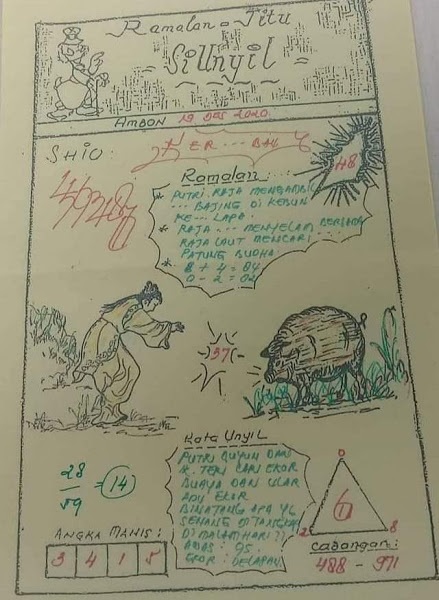 Ramalan Jitu
SiUnyil
AMBON 19 DES 2020
SHIO:
48
Ramalan:
* PUTRI RAJA MENGAMBIL
... BAJING DI KEBUN
KE... LAPA.
* RAJA ... MENYELAM BERSAMA
RAJA LAUT MENCARI
PATUNG BUDHA.
* 8 + 4 = 84
0 - 2 = 02
37
Kata Unyil
PUTRI DUYUN DAN
CARI EKOR
BUAYA DAN ULAR
ADU EKOR
BINATANG APA YG
SENANG DITANGKAP
DI MALAM HARI ??
AWAS: 95.
EKOR: DELAPAN
28
59
= 14
0
6
1
2
8
ANGKA MANIS:
3 4 1 5
Cadangan:
488 - 971